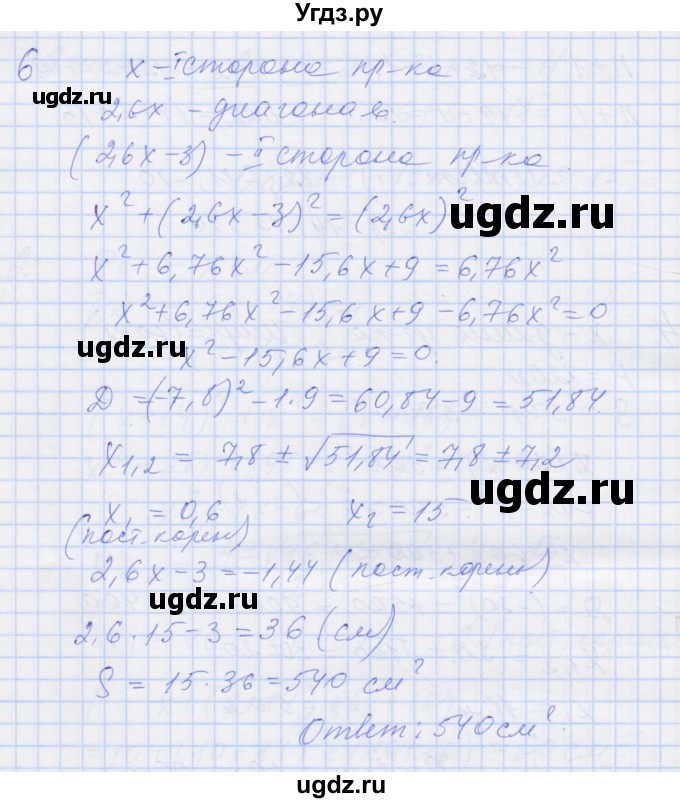 Угдз.ру
6 x – I сторона пр-ка
ugdz.ru
2,6x – диагональ.
(2,6x – 3) – II сторона пр-ка.
x² + (2,6x – 3)² = (2,6x)²
ugdz.ru
x² + 6,76x² – 15,6x + 9 = 6,76x²
x² + 6,76x² – 15,6x + 9 – 6,76x² = 0
ugdz.ru
x² – 15,6x + 9 = 0.
D = (-7,8)² – 1·9 = 60,84 – 9 = 51,84.
x₁,₂ = 7,8 ± √51,84 = 7,8 ± 7,2
ugdz.ru
x₁ = 0,6 x₂ = 15
(пост. корень)
2,6x – 3 = –1,44 (пост. корень)
ugdz.ru
2,6·15 – 3 = 36 (см)
S = 15·36 = 540 см²
Ответ: 540 см².
ugdz.ru